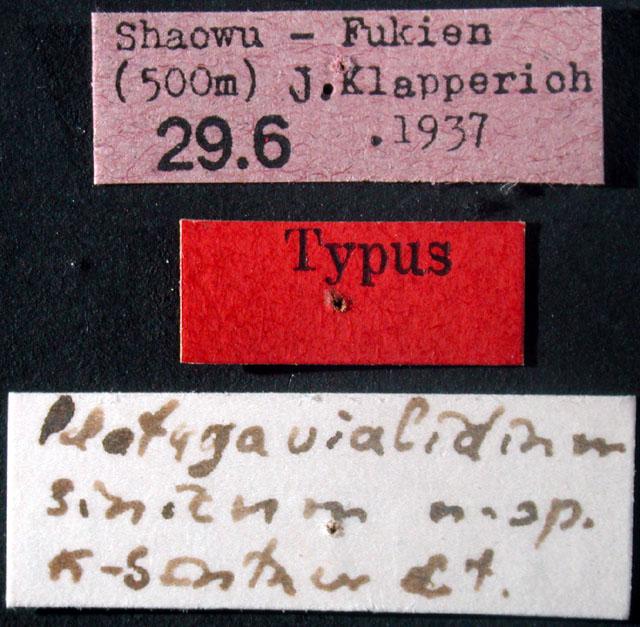 Shaowu - Fukien
(500m) J.Klapperich
29.6 .1937
Typus
Platygavialidium
sinicum n.sp.
K-Günther dt.